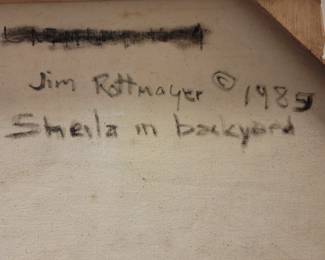 Jim Rottmayer © 1985
Sheila in backyard